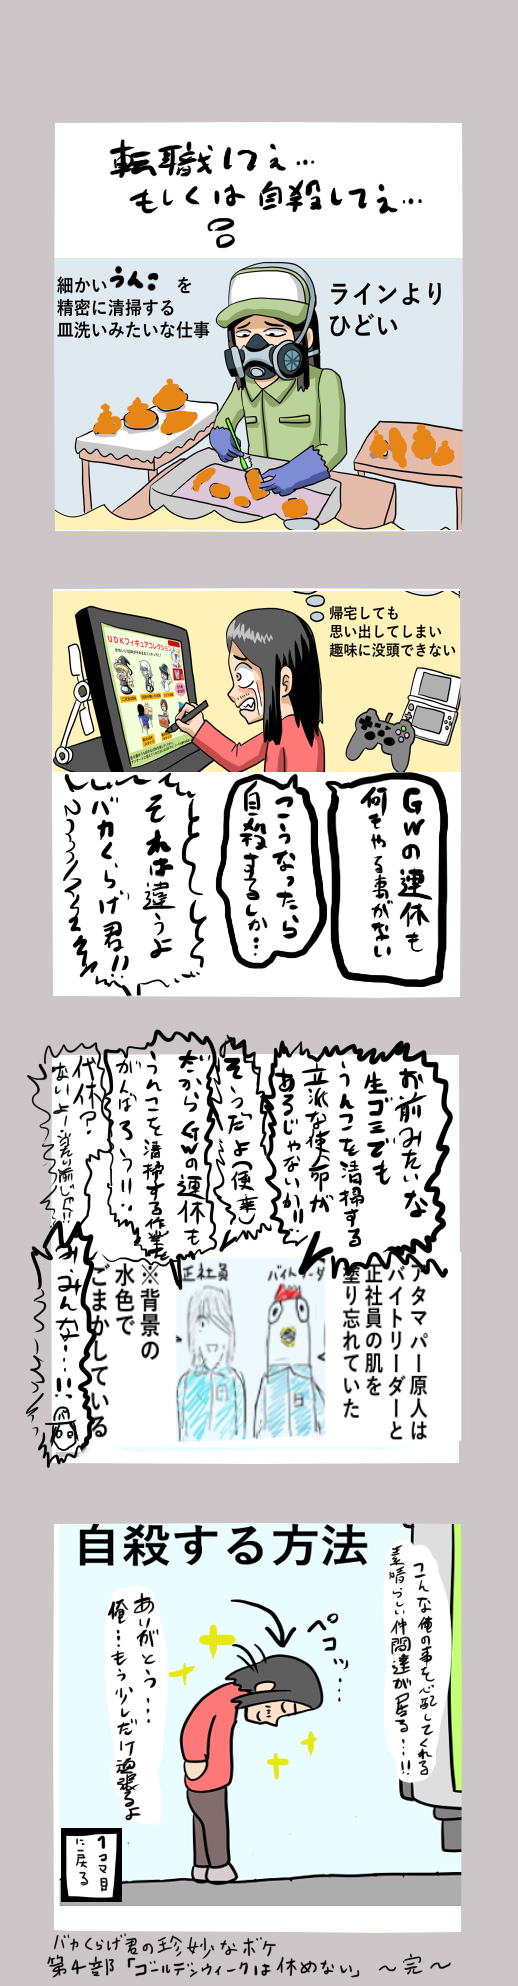 転職してぇ…
もしくは自殺してぇ…
細かいうんこを
精密に清掃する
皿洗いみたいな仕事
ラインより
ひどい
帰宅しても
思い出してしまい
趣味に没頭できない
UDKフィギュアコレクション
GWの連休も
何もやる事がない
こうなったら
自殺するしか…
それは違うよ
バカくらげ君!!
お前みたいな
生ゴミでも
うんこを清掃する
立派な使命が
あるじゃないか!!
そうだよ(便乗)
だからGWの連休も
うんこを清掃する作業を
がんばろう!!
代休?
ねぃよ!当たり前じゃん!!
み、みんな…!!
アタマパー原人は
バイトリーダーと
正社員の肌を
塗り忘れていた
バイトリーダー
正社員
日
※背景の
水色で
ごまかしている
自殺する方法
こんな俺の事を心配してくれる
素晴らしい仲間達が居る…!!
ペコッ…
ありがとう…
俺…もう少しだけ頑張るよ
1コマ目
に戻る
バカくらげ君の珍妙なボケ
第4部「ゴールデンウィークは休めない」 ~完~